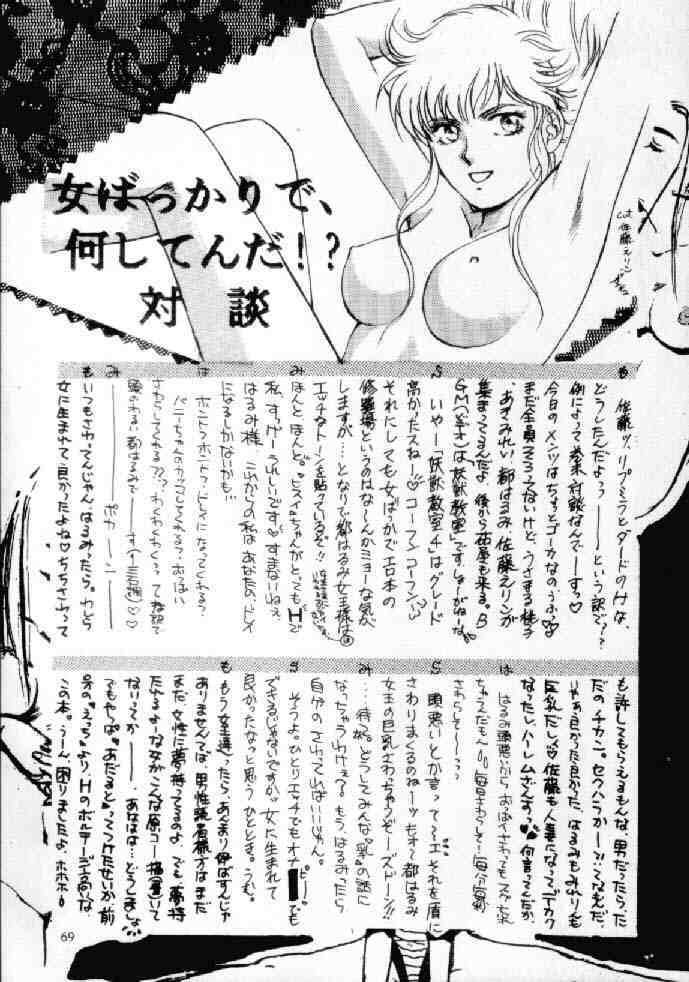 女ばっかりで、
何してんだ!?
対談
cut 佐藤えリン
も 佐藤ッ、リプミラとダードのHな、
どうしたんだよっ ―― という訳で??
例によって巻末対談なんでーすっ♡
今日のメンツはちょっとゴーカなのうふっ♡
まだ全員そろってないけど、うさぎする桃子
、あさみれい、都はるみ、佐藤えリンが
集まってるんだよ。後から西屋も来る。B
GM(ビデオ)は「妖獣教室」です。しょーがねーな
ら いやー「妖獣教室チ」はグレード
高かったスねー♡コーフンコーフン
それにしても女ばかでエロ本の
修羅場というのはなーんかミョーな気が
しますが…となりで都はるみ女王様は
エッチなトーンを貼っているぞ!!
み ほんとほんと。ヒスイちゃんがとっても"Hで
私、すっげーうれしいです♡すまないねえ
はるみ様、これから私はあなたの、ドレイ
になるしかないかも…
は ホントっホントっ?ドレイになってくれるう?
バニーちゃんのカッコしてくれる?おっぱい
さわらしてくれる??わくわくわくっってね訳で
頭のわるい都はるみで――す
み ――――― ポカーン
も いつもさわってんじゃん、はるみったら。
女に生まれて良かったよね♡ちちさわって
も許してもらえるもんな、男だったらた
だのチカン。セクハラかー?!ってなもんだ、
いやあ良かった良かった、はるみもみゃりんも
巨乳だし♡佐藤も人妻になってデカク
なったし、ハーレムさんよっ♡何言ってだか、
は はるみ頭悪いからおっぱいさわってもスグ忘れ
ちゃえだもーん。毎日さわらして〜毎分毎秒
さわらして〜〜っ?
ら 頭悪いとか言ってェ それを盾に
さわりまくるのねーッもォて都はるみ
女王の巨乳さわっちゃうぞーズドーン!!
み …待がどうしてみんな"乳"の話に
なっちゃうわけェ?もう、はるみったら
自分のさわってればいいじゃん。
ら そうよ。ひとりエッチでもオナ ピー でも
できるじゃないですか♡女に生まれて
良かったなっと思うひととき。うむ。
も もう女王達ったら、あんまり伊ばすんじゃ
ありませんては、男性読者様方はまだ
まだ女性に夢持ってるのよ でも夢持
たせるよーな女がこんな原コー描いて
なりってか――、あははは…どうしましょ
でもやっぱ"あだると"ってつけたせいか、前
号の"えっち"より、Hのボルテージ高いな、
この本。うーん、困りましたよ、ホホホ。
69